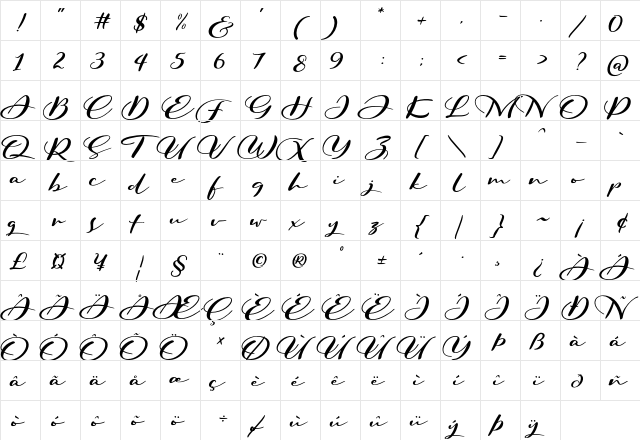 ! " # $ % & ' ( ) * + , - . / 0
1 2 3 4 5 6 7 8 9 : ; < = > ? @
A B C D E F G H I J K L M N O P
Q R S T U V W X Y Z [ \ ] ^ _ `
a b c d e f g h i j k l m n o p
q r s t u v w x y z { | } ~ ¡ ¢
£ ¤ ¥ ¦ § ¨ © ® ° ± ´ · ¸ ¿ À Á
Â Ã Ä Å Æ Ç È É Ê Ë Ì Í Î Ï Ð Ñ
Ò Ó Ô Õ Ö × Ø Ù Ú Û Ü Ý Þ ß à á
â ã ä å æ ç è é ê ë ì í î ï ð ñ
ò ó ô õ ö ÷ ø ù ú û ü ý þ ÿ